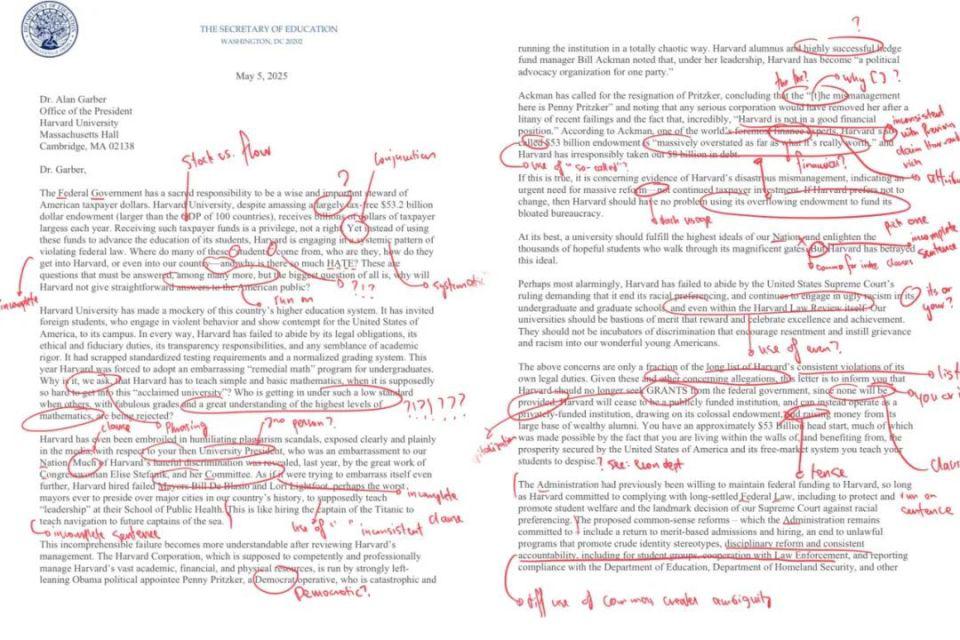 THE SECRETARY OF EDUCATION
WASHINGTON, DC 20202
May 5, 2025
Dr. Alan Garber
Office of the President
Harvard University
Massachusetts Hall
Cambridge, MA 02138
Dr. Garber,
Stock vs. flow
?
Conjunction
The Federal Government has a sacred responsibility to be a wise and important steward of
American taxpayer dollars. Harvard University, despite amassing a largely tax-free $53.2 billion
dollar endowment (larger than the GDP of 100 countries), receives billions of dollars of taxpayer
largess each year. Receiving such taxpayer funds is a privilege, not a right. Yet instead of using
these funds to advance the education of its students, Harvard is engaging in a systemic pattern of
violating federal law. Where do many of these students come from, who are they, how do they
get into Harvard, or even into our country—and why is there so much HATE? These are
questions that must be answered, among many more, but the biggest question of all is, why will
Harvard not give straightforward answers to the American public?
?!?
systematic
incomplete
run on
Harvard University has made a mockery of this country's higher education system. It has invited
foreign students, who engage in violent behavior and show contempt for the United States of
America, to its campus. In every way, Harvard has failed to abide by its legal obligations, its
ethical and fiduciary duties, its transparency responsibilities, and any semblance of academic
rigor. It had scrapped standardized testing requirements and a normalized grading system. This
year Harvard was forced to adopt an embarrassing "remedial math" program for undergraduates.
Why is it, we ask, that Harvard has to teach simple and basic mathematics, when it is supposedly
so hard to get into this "acclaimed university"? Who is getting in under such a low standard
when others, with fabulous grades and a great understanding of the highest levels of
mathematics, are being rejected?
?!?!????
clause
Phrasing
no person?
Harvard has even been embroiled in humiliating plagiarism scandals, exposed clearly and plainly
in the media, with respect to your then University President, who was an embarrassment to our
Nation. Much of Harvard's hateful discrimination was revealed, last year, by the great work of
Congresswoman Elise Stefanik, and her Committee. As if it were trying to embarrass itself even
further, Harvard hired failed Mayors Bill De Blasio and Lori Lightfoot, perhaps the worst
mayors ever to preside over major cities in our country's history, to supposedly teach
"leadership" at their School of Public Health. This is like hiring the captain of the Titanic to
teach navigation to future captains of the sea.
incomplete
clause
incomplete sentence
use of " " inconsistent
This incomprehensible failure becomes more understandable after reviewing Harvard's
management. The Harvard Corporation, which is supposed to competently and professionally
manage Harvard's vast academic, financial, and physical resources, is run by strongly left-
leaning Obama political appointee Penny Pritzker, a Democrat operative, who is catastrophic and
Democratic?
?
running the institution in a totally chaotic way. Harvard alumnus and highly successful hedge
fund manager Bill Ackman noted that, under her leadership, Harvard has become "a political
advocacy organization for one party."
why [ ] ?
Ackman has called for the resignation of Pritzker, concluding that the "[t]he mismanagement
here is Penny Pritzker" and noting that any serious corporation would have removed her after a
litany of recent failings and the fact that, incredibly, "Harvard is not in a good financial
position." According to Ackman, one of the world's foremost finance experts, Harvard's so-
called $53 billion endowment is "massively overstated as far as what it's really worth," and
Harvard has irresponsibly taken on $8 billion in debt.
inconsistent
with previous
claim
rich
use of "so-called"
financial?
If this is true, it is concerning evidence of Harvard's disastrous mismanagement, indicating an
urgent need for massive reform—not continued taxpayer investment. If Harvard prefers not to
change, then Harvard should have no problem using its overflowing endowment to fund its
bloated bureaucracy.
dash usage
pick one
At its best, a university should fulfill the highest ideals of our Nation, and enlighten the
thousands of hopeful students who walk through its magnificent gates. But Harvard has betrayed
this ideal.
incomplete
sentence
comma for
Perhaps most alarmingly, Harvard has failed to abide by the United States Supreme Court's
ruling demanding that it end its racial preferencing, and continues to engage in ugly racism in its
undergraduate and graduate schools, and even within the Harvard Law Review itself. Our
universities should be bastions of merit that reward and celebrate excellence and achievement.
They should not be incubators of discrimination that encourage resentment and instill grievance
and racism into our wonderful young Americans.
its or
your?
use of even?
The above concerns are only a fraction of the long list of Harvard's consistent violations of its
own legal duties. Given these and other concerning allegations, this letter is to inform you that
Harvard should no longer seek GRANTS from the federal government, since none will be
provided. Harvard will cease to be a publicly funded institution, and can instead operate as a
privately-funded institution, drawing on its colossal endowment, and raising money from its
large base of wealthy alumni. You have an approximately $53 Billion head start, much of which
was made possible by the fact that you are living within the walls of, and benefiting from, the
prosperity secured by the United States of America and its free-market system you teach your
students to despise.
list
? see: Econ dept
tense
The Administration had previously been willing to maintain federal funding to Harvard, so long
as Harvard committed to complying with long-settled Federal Law, including to protect and
promote student welfare and the landmark decision of our Supreme Court against racial
preferencing. The proposed common-sense reforms – which the Administration remains
committed to – include a return to merit-based admissions and hiring, an end to unlawful
programs that promote crude identity stereotypes, disciplinary reform and consistent
accountability, including for student groups, cooperation with Law Enforcement, and reporting
compliance with the Department of Education, Department of Homeland Security, and other
run on
sentence
diff use of comma creates ambiguity